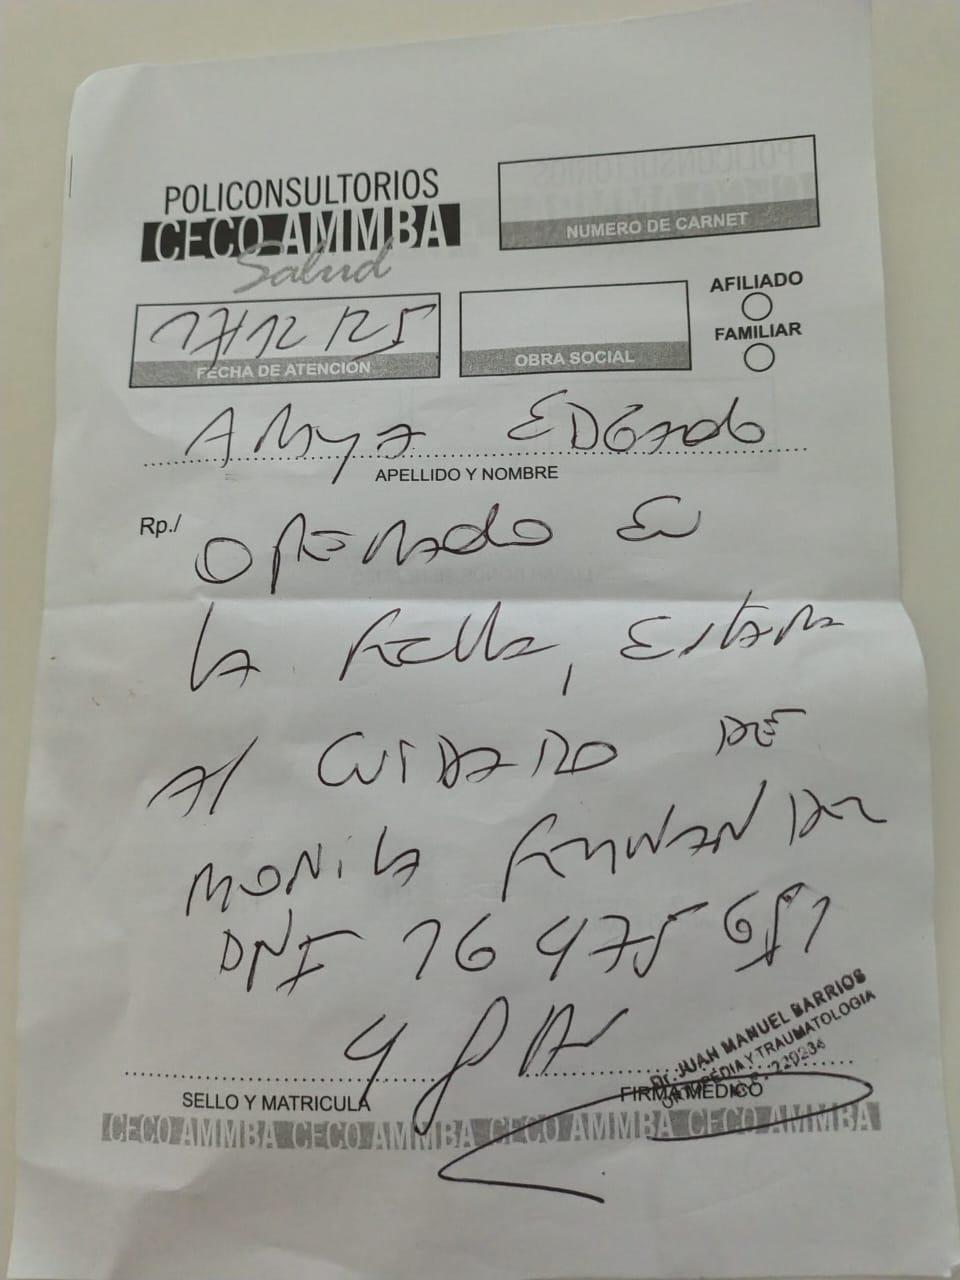 POLICONSULTORIOS
CECO AMMBA
Salud
NUMERO DE CARNET
17/12/25
FECHA DE ATENCIÓN
OBRA SOCIAL
AFILIADO
FAMILIAR
EDGardo
APELLIDO Y NOMBRE
Rp./
operado en
la fecha, estara
al cuidado de
Monica Fernandez
DNI 16 475 651
SELLO Y MATRICULA
FIRMA MEDICO
Dr. JUAN MANUEL BARRIOS
ORTOPEDIA Y TRAUMATOLOGIA
CECO AMMBA CECO AMMBA CECO AMMBA CECO AMMBA